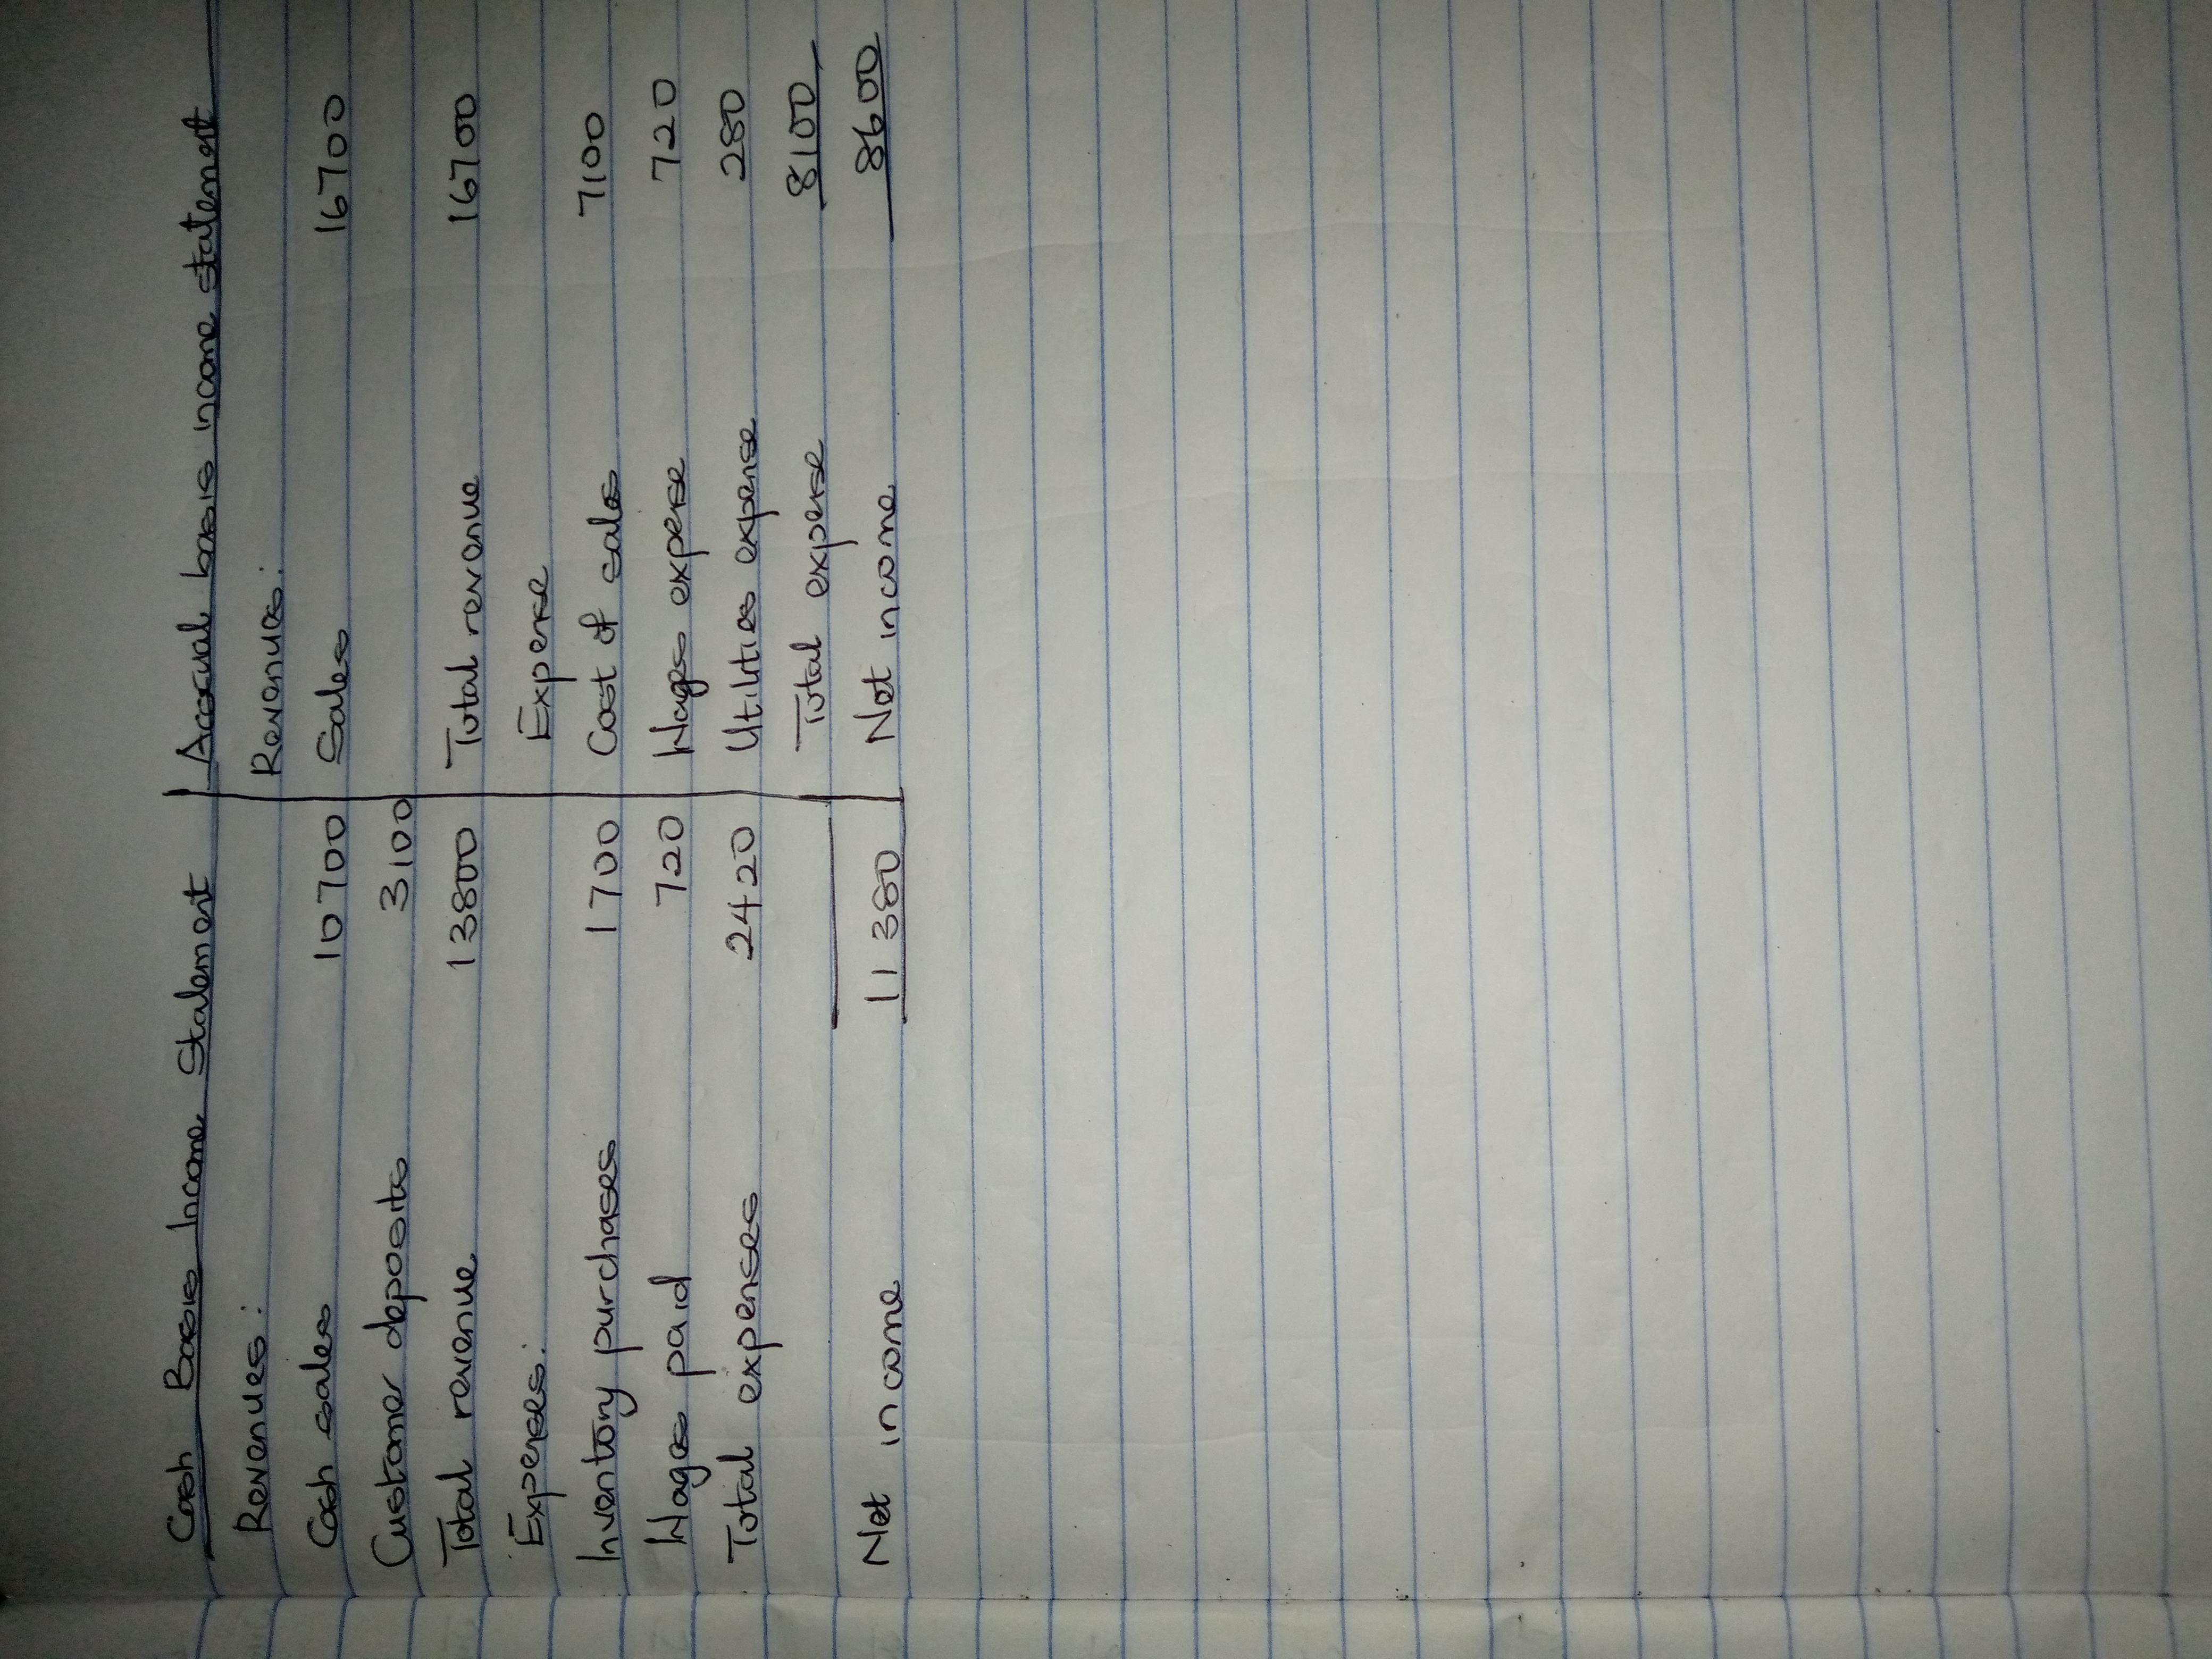 Cash Basis Income Statement | Accrual basis income statement
Revenues: Revenues:
Cash sales 10700 Sales 16700
Customer deposits 3100
Total revenue 13800 Total revenue 16700
Expenses: Expense
Inventory purchases 1700 Cost of sales 7100
Wages paid 720 Wages expense 720
Total expenses 2420 Utilities expense 280
Total expense 8100
Net income 11380 Net income 8600